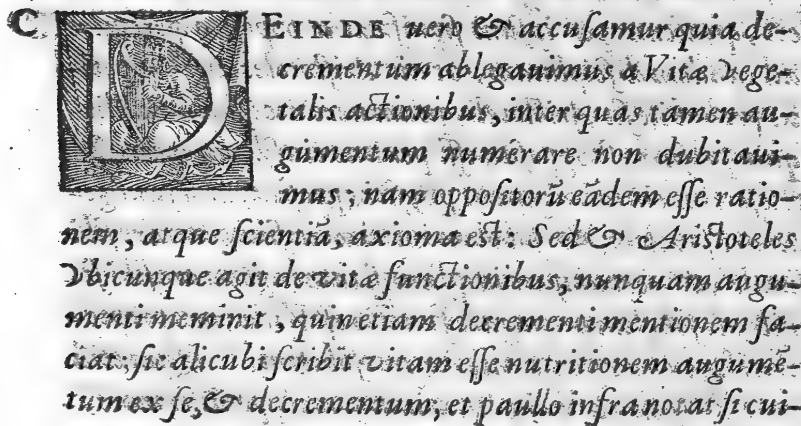 C DEINDE uero & accuſamur quia de-
crementum ablegauimus a Vitæ vege-
talis actionibus, inter quas tamen au-
gumentum numerare non dubitaui-
mus; nam oppoſitorū eādem eſſe ratio-
nem, atque ſcientiā, axioma eſt: Sed & Ariſtoteles
Vbicunque agit de vitæ functionibus, nunquam augu-
menti meminit, quin etiam decrementi mentionem fa-
ciat: ſic alicubi ſcribit vitam eſſe nutritionem augumē-
tum ex ſe, & decrementum; et paullo infra notat ſi cui-